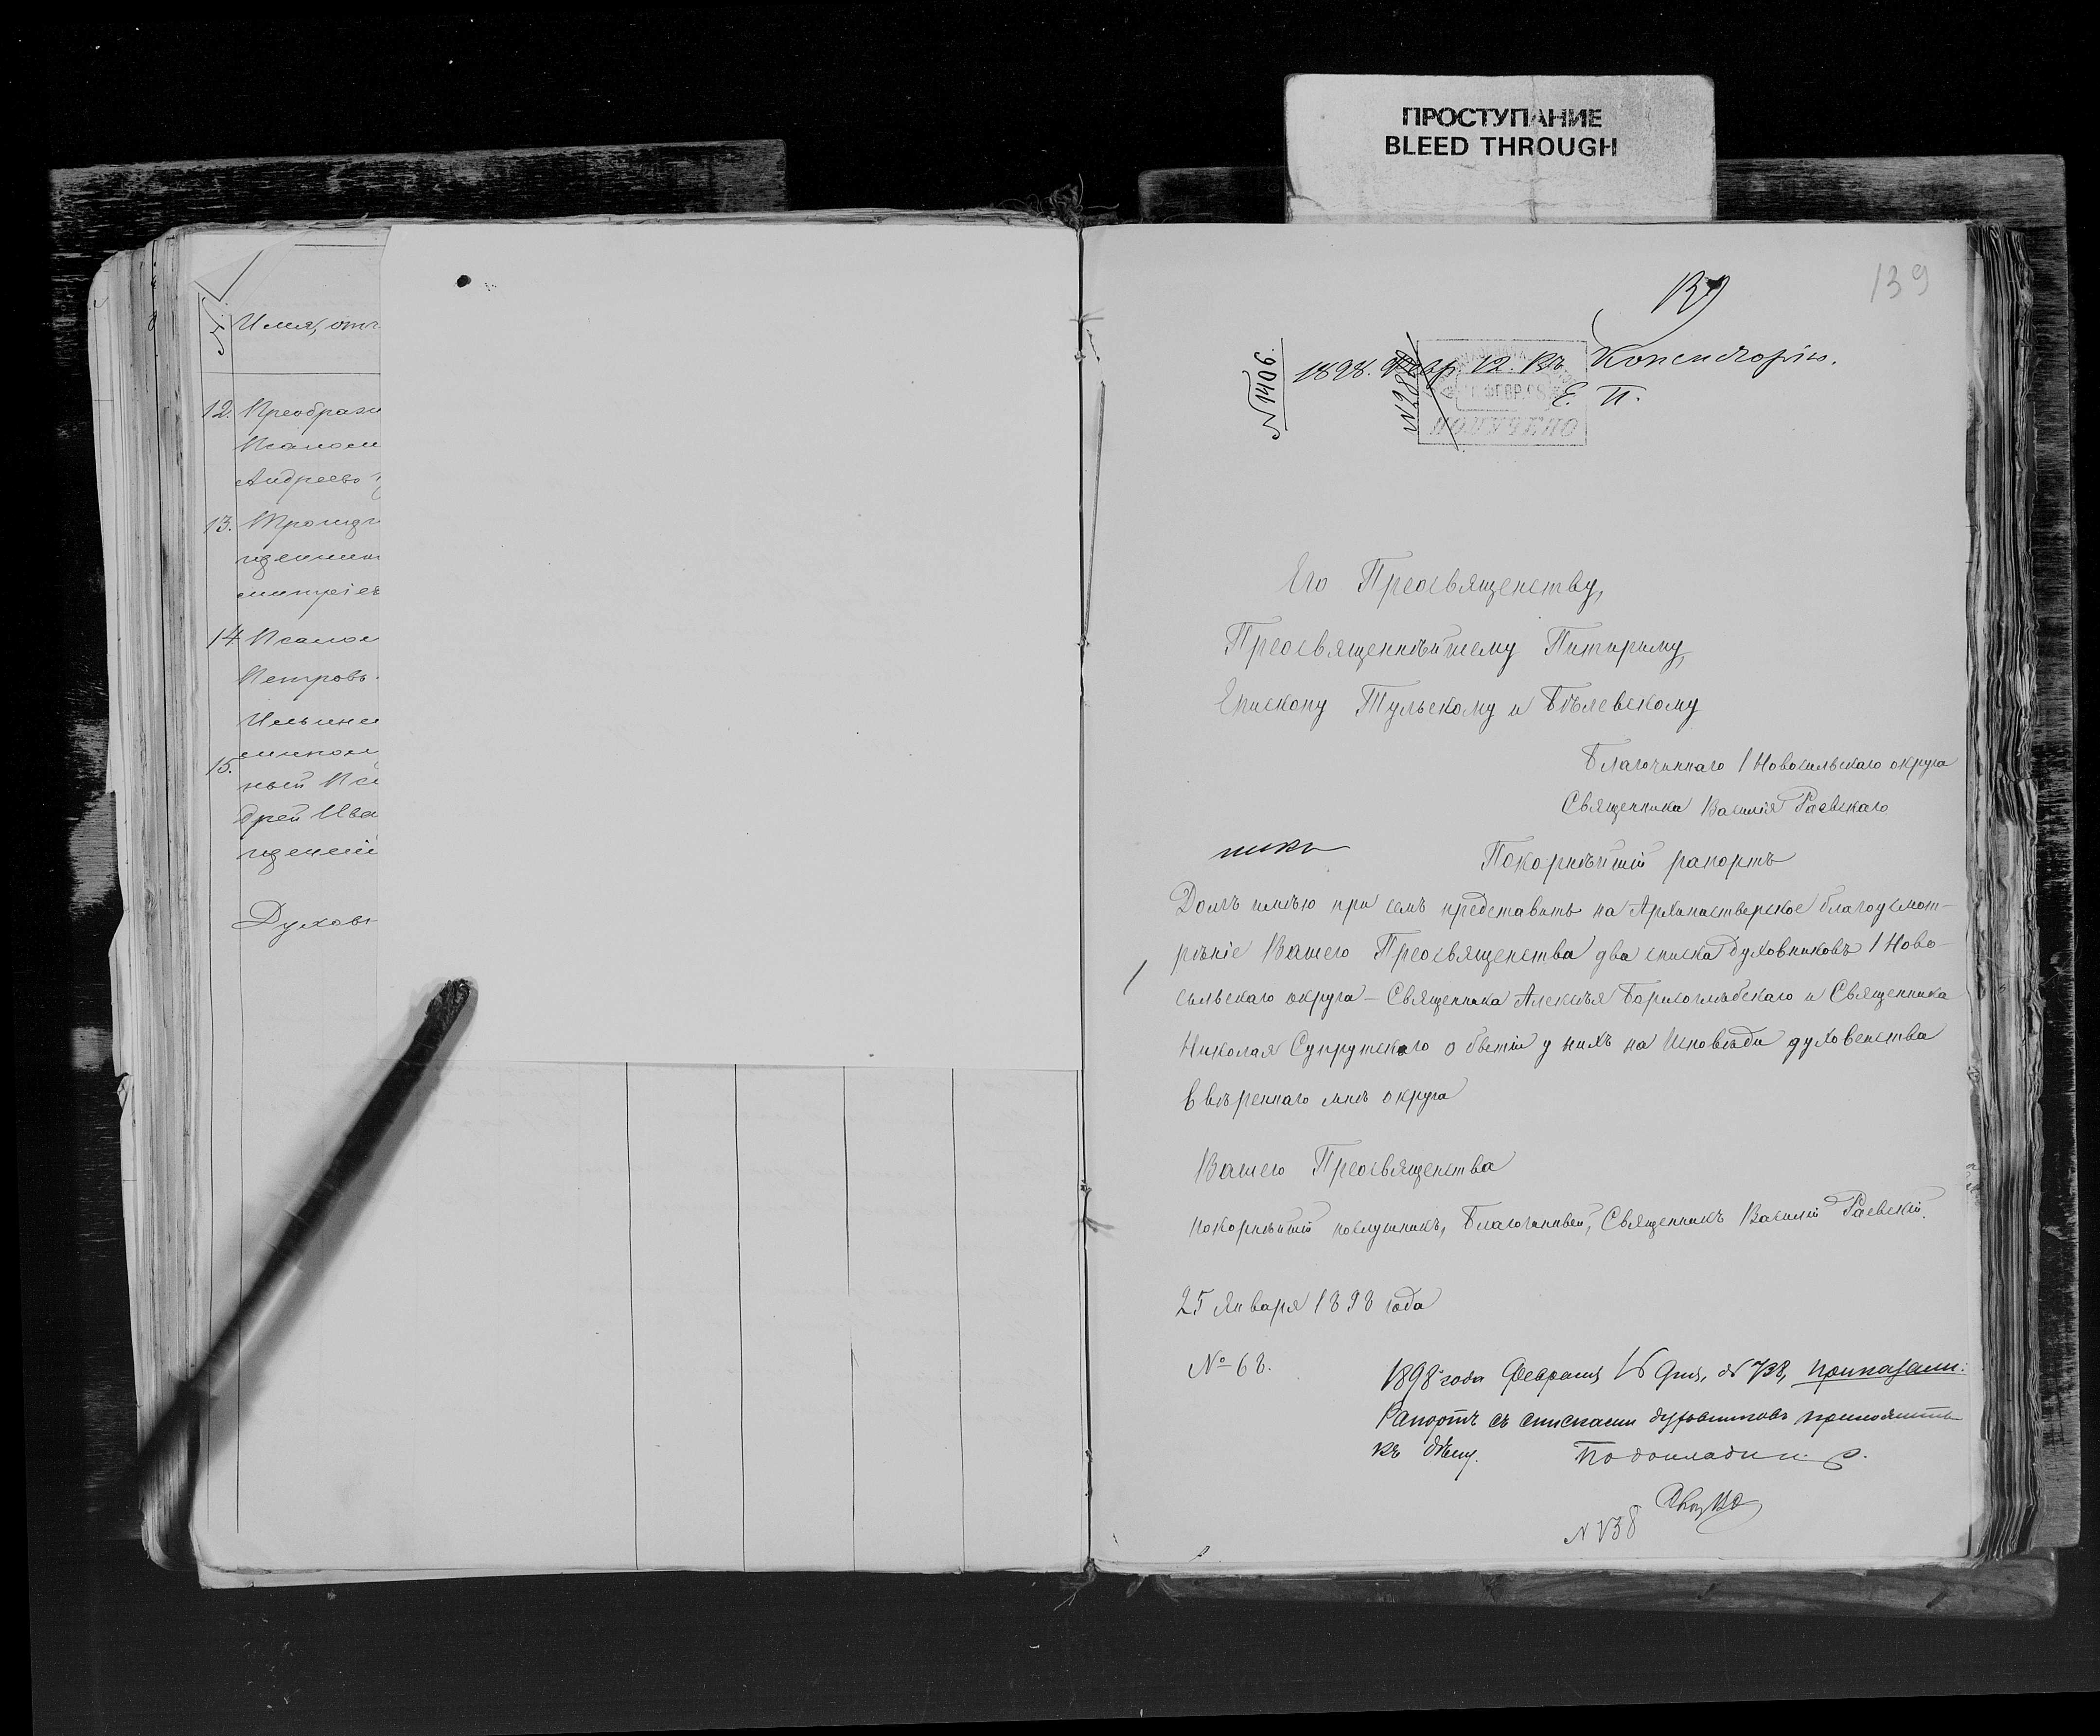 ПРОСТУПАНИЕ
BLEED THROUGH
Имя, отч
12. Преображ
Псалом
Андреевъ
13. Троицк
щенник
митріев
14 Псалом
Петровъ
Ильинс
15.
ный Пс
дрей Ива
щеній
Духовн
139
139
№1406.
1898. Февр. 12. Въ Консисторію.
Е. П.
ПОЛУЧЕНО
Его Преосвященству,
Преосвященнѣйшему Питириму,
Епископу Тульскому и Бѣлевскому
Благочиннаго 1 Новосильскаго округа
Священника Василія Раевскаго
Покорнѣйшій рапортъ
Долгъ имѣю при семъ представить на Архипастырское благоусмот-
рѣніе Вашего Преосвященства два списка духовниковъ 1 Ново-
сильскаго округа – Священника Алексѣя Борисоглѣбскаго и Священника
Николая Супрутскаго о бытіи у нихъ на Исповѣди духовенства
ввѣреннаго мнѣ округа
Вашего Преосвященства
покорнѣйшій послушникъ, Благочинный, Священникъ Василій Раевскій.
25 Января 1898 года
№ 68.
1898 года Февраля 16 дня, № 738, приказали:
Рапортъ съ списками духовниковъ пріобщить
къ дѣлу.
№ 738